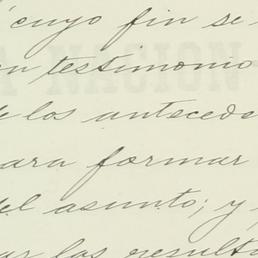 cuyo fin se
en testimonio
de los antecede
para formar
del asunto; y
los resulta